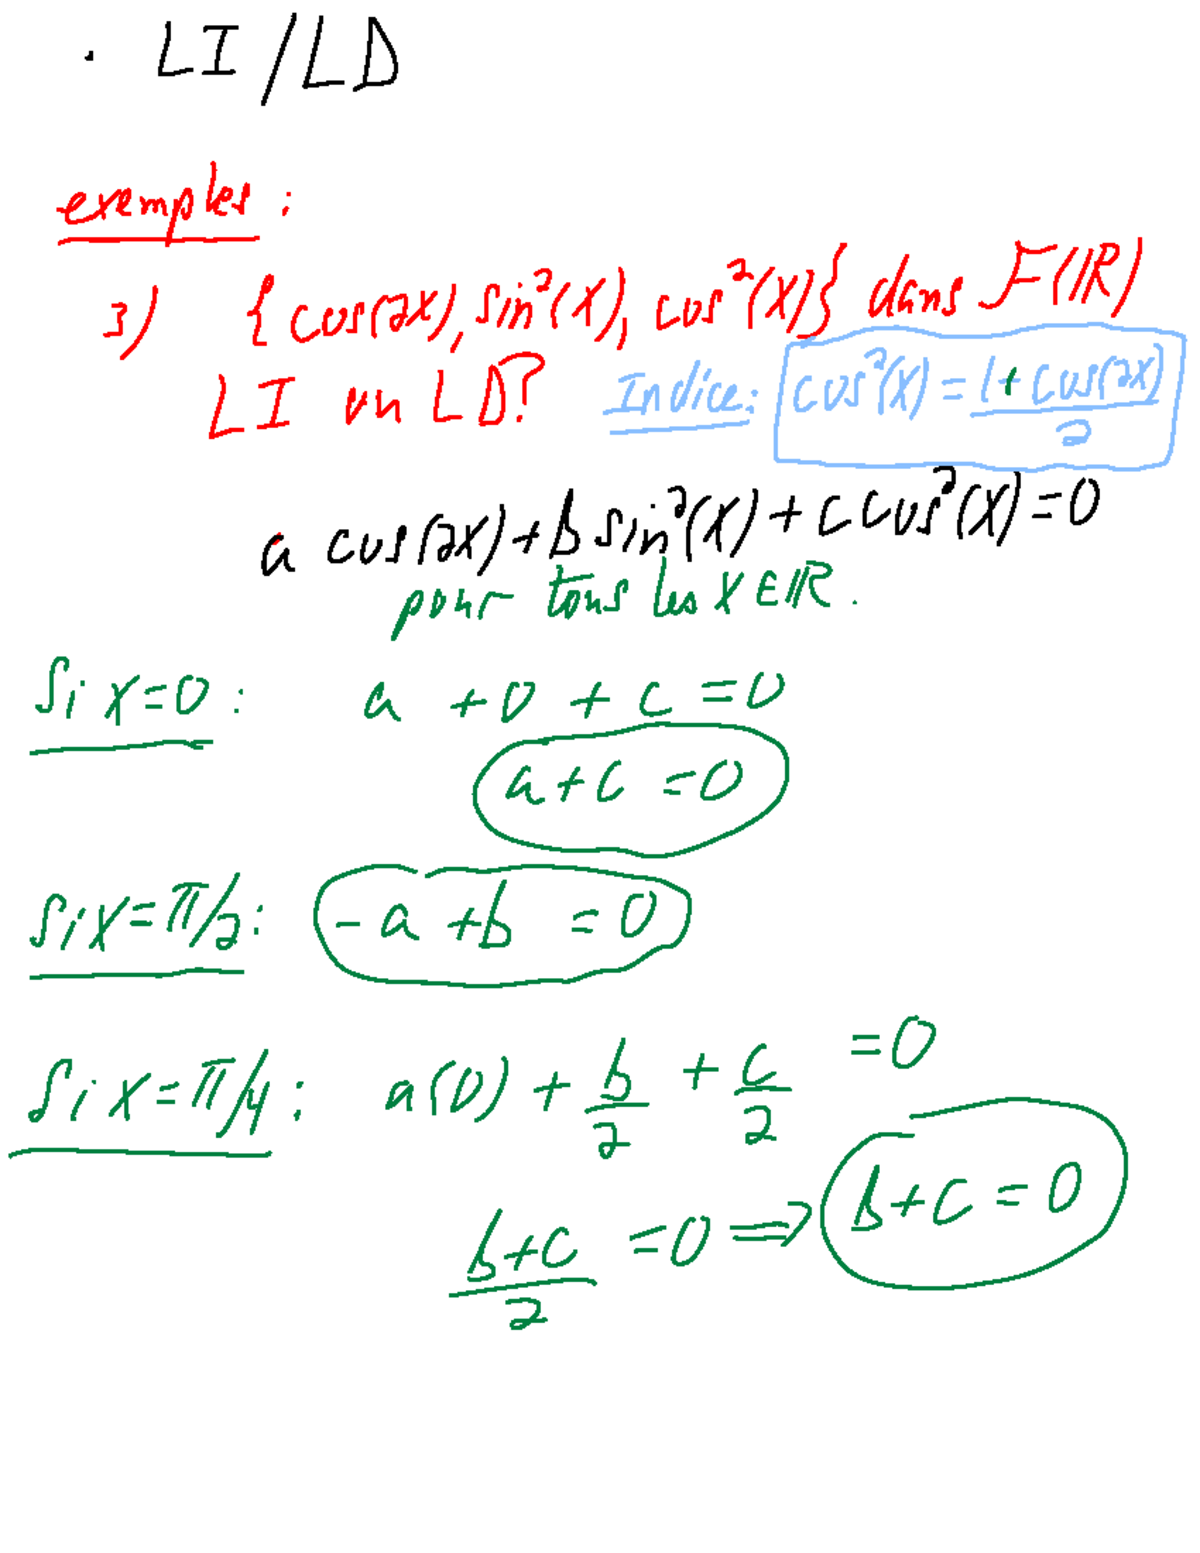 · LI/LD
exemples :
3) {cos(2x), sin²(x), cos²(x)} dans F(ℝ)
LI ou LD? Indice: cos²(x) = (1 + cos(2x))/2
a cos(2x) + b sin²(x) + c cos²(x) = 0
pour tous les x ∈ ℝ.
Si x=0 : a + 0 + c = 0
a + c = 0
Si x = π/2 : -a + b = 0
Si x = π/4 : a(0) + b/2 + c/2 = 0
(b+c)/2 = 0 ⇒ b + c = 0